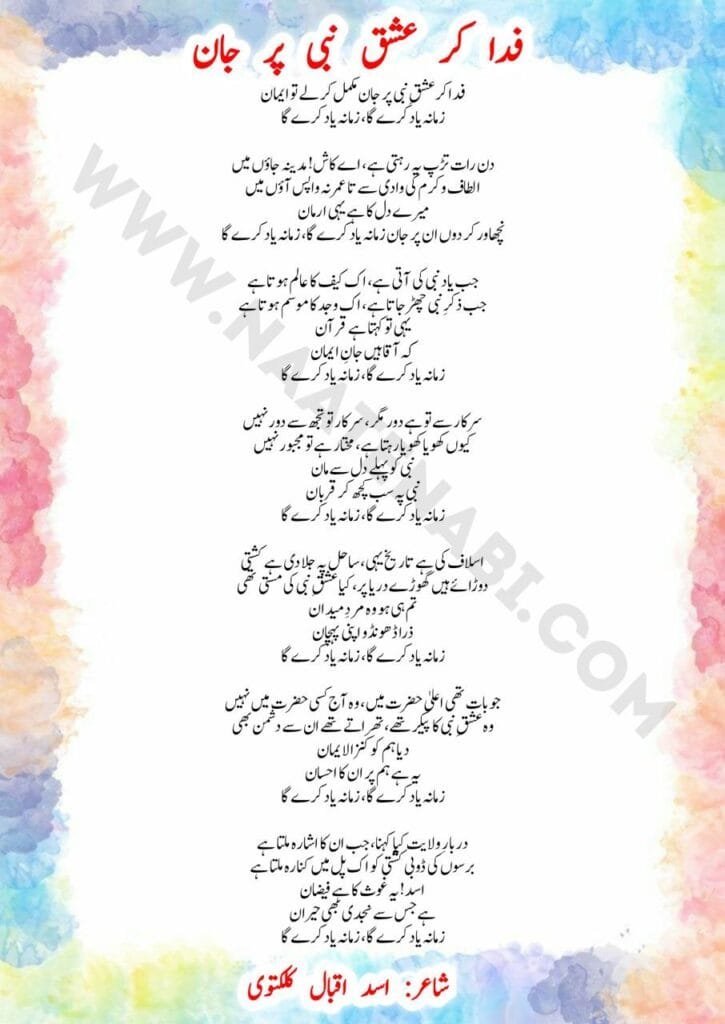 فدا کر عشق نبی پر جان
فدا کر عشقِ نبی پر جان مکمل کر لے تو ایمان
زمانہ یاد کرے گا، زمانہ یاد کرے گا
دن رات تڑپ یہ رہتی ہے، اے کاش! مدینہ جاؤں میں
الطاف و کرم کی وادی سے تا عمر نہ واپس آؤں میں
میرے دل کا ہے یہی ارمان
نچھاور کر دوں ان پر جان زمانہ یاد کرے گا، زمانہ یاد کرے گا
جب یاد نبی کی آتی ہے، اک کیف کا عالم ہوتا ہے
جب ذکرِ نبی چھڑ جاتا ہے، اک وجد کا موسم ہوتا ہے
یہی تو کہتا ہے قرآن
کہ آقا ہیں جانِ ایمان
زمانہ یاد کرے گا، زمانہ یاد کرے گا
سرکار سے تو ہے دور مگر، سرکار تو تجھ سے دور نہیں
کیوں کھویا کھویا رہتا ہے، مختار ہے تو مجبور نہیں
نبی کو پہلے دل سے مان
نبی پہ سب کچھ کر قربان
زمانہ یاد کرے گا، زمانہ یاد کرے گا
اسلاف کی ہے تاریخ یہی، ساحل پہ جلا دی ہے کشتی
دوڑائے ہیں گھوڑے دریا پر، کیا عشقِ نبی کی مستی تھی
تم ہی ہو وہ مردِ میدان
ذرا ڈھونڈو اپنی پہچان
زمانہ یاد کرے گا، زمانہ یاد کرے گا
جو بات تھی اعلیٰ حضرت میں، وہ آج کسی حضرت میں نہیں
وہ عشقِ نبی کا پیکر تھے، تھراتے تھے ان سے دشمن بھی
دیا ہم کو کنز الایمان
یہ ہے ہم پر ان کا احسان
زمانہ یاد کرے گا، زمانہ یاد کرے گا
دربارِ ولایت کیا کہنا، جب ان کا اشارہ ملتا ہے
برسوں کی ڈوبی کشتی کو اک پل میں کنارہ ملتا ہے
اسد! یہ غوث کا ہے فیضان
ہے جس سے نجدی بھی حیران
زمانہ یاد کرے گا، زمانہ یاد کرے گا
شاعر: اسد اقبال کلکتوی
WWW.NAATENABI.COM